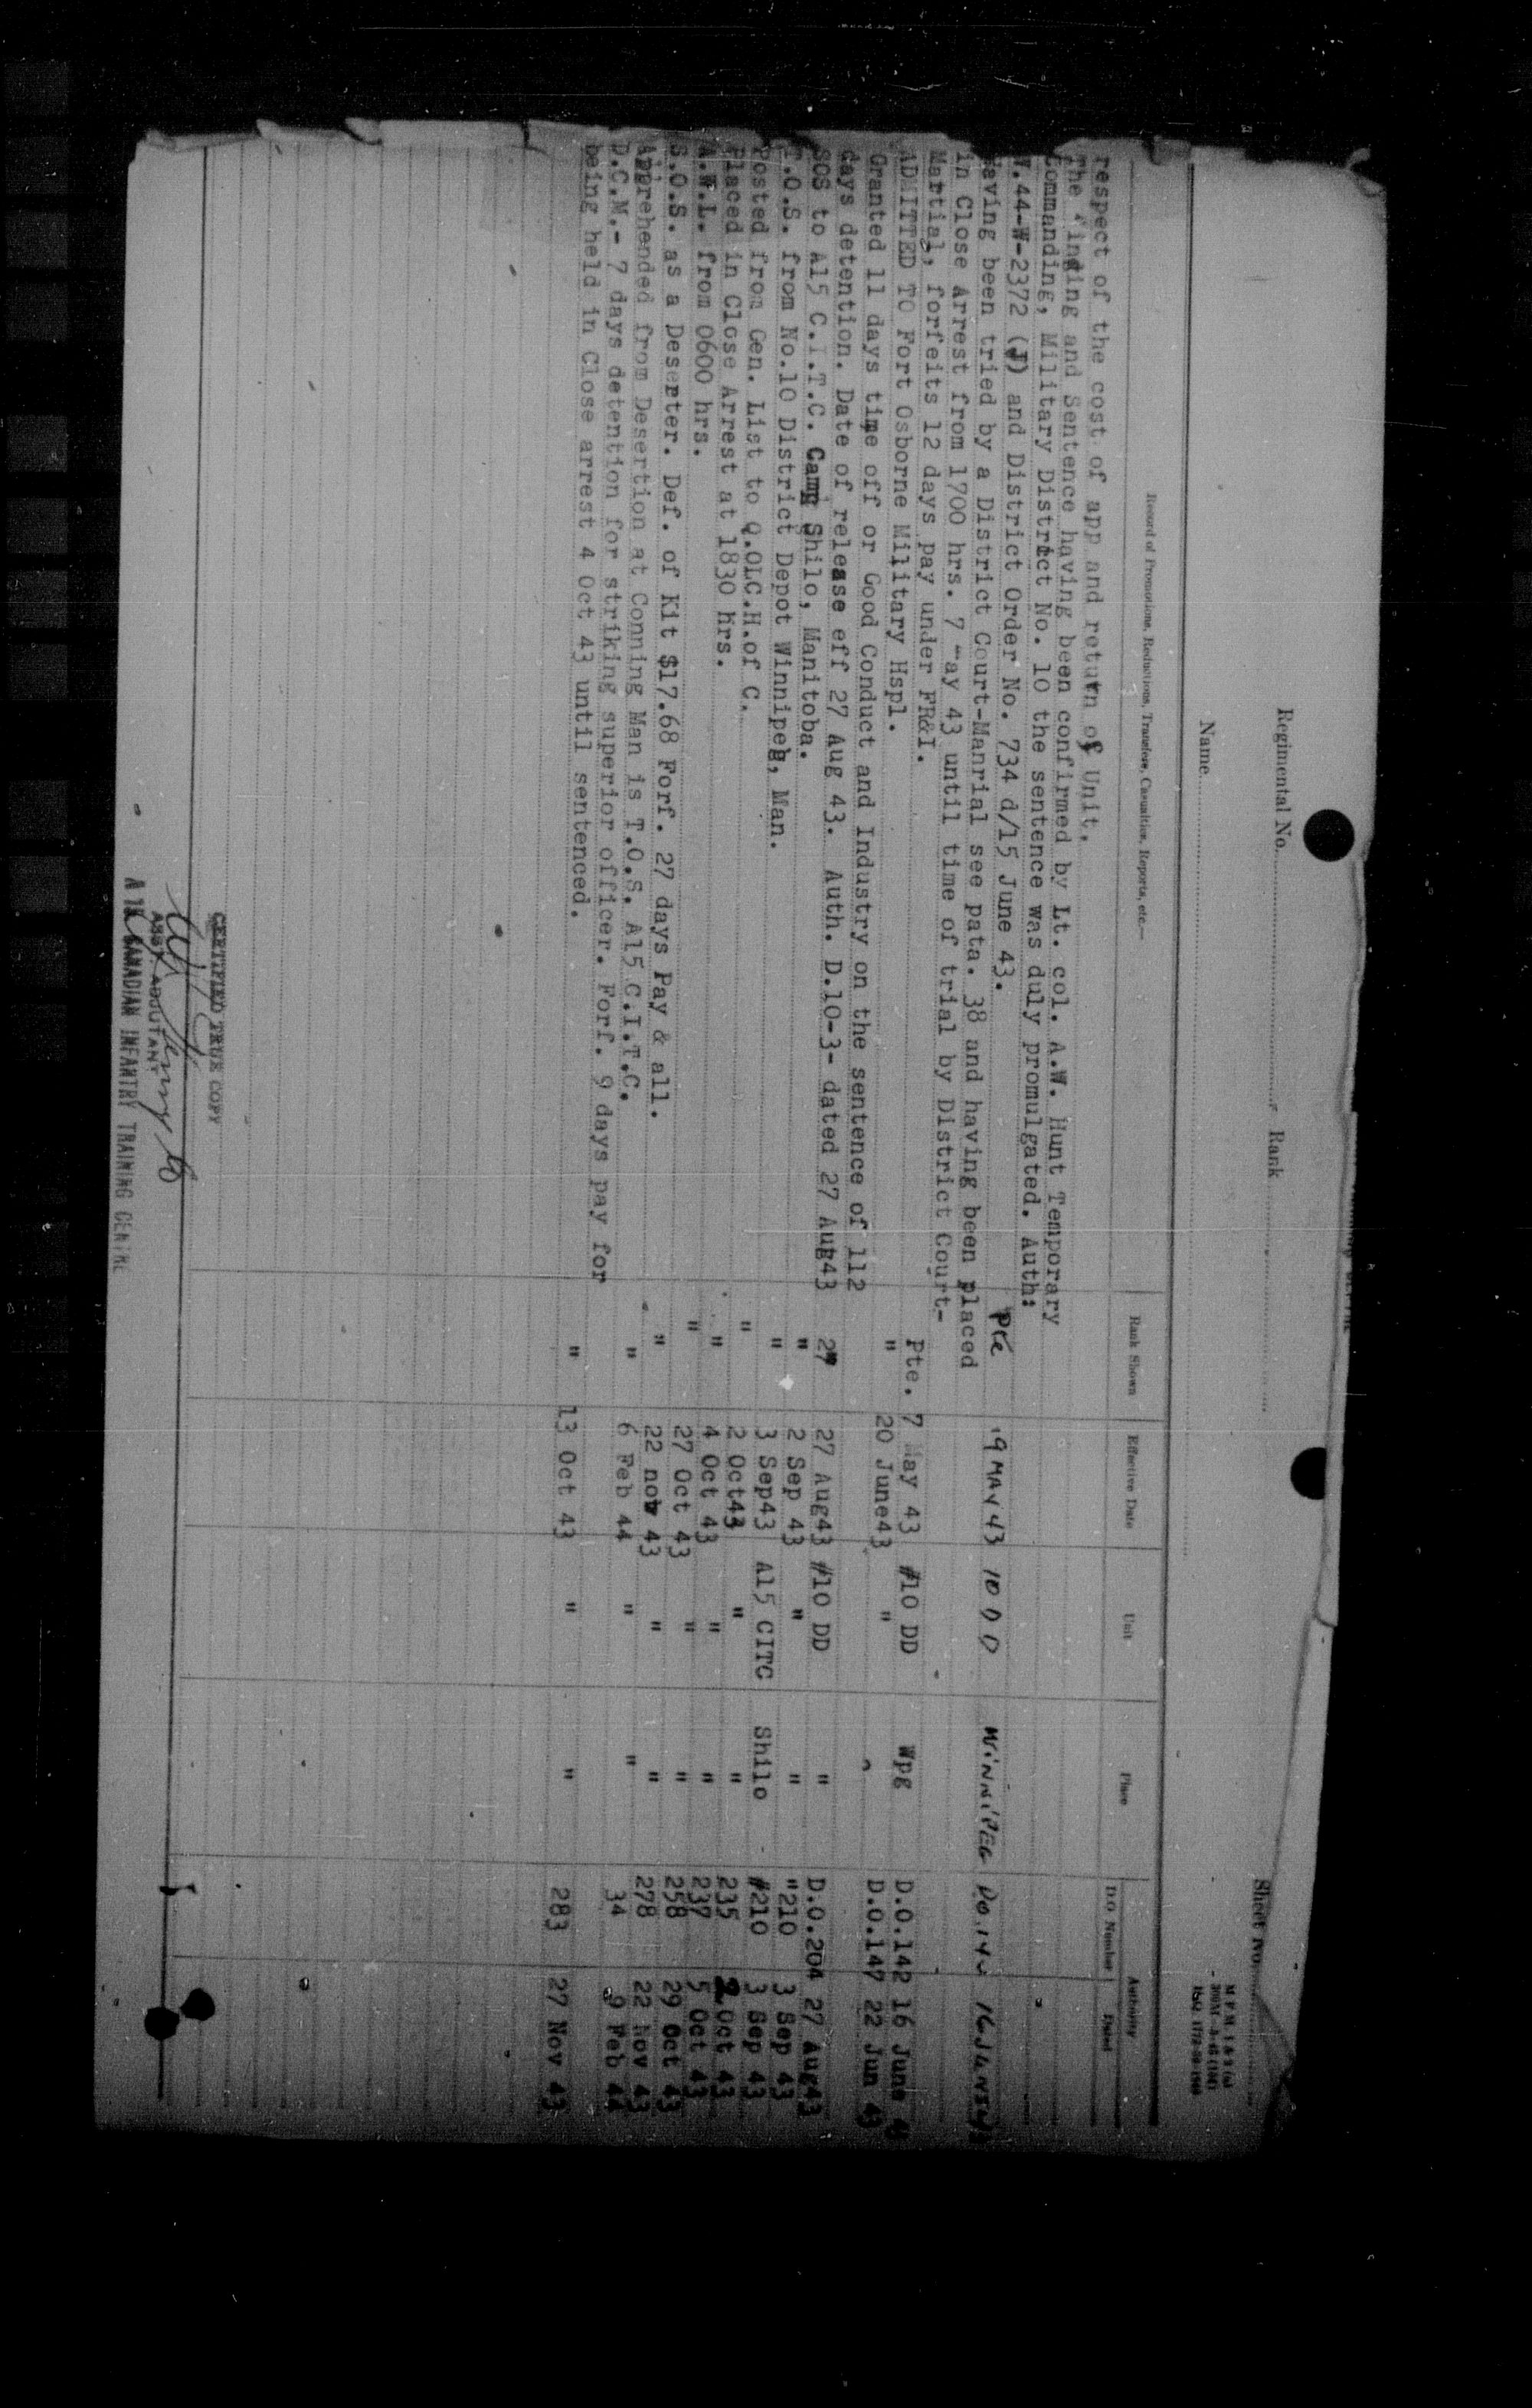 Sheet No.
M.F.M. 1 & 2 (a)
Regimental No. Rank
Name
Record of Promotions, Reductions, Transfers, Casualties, Reports, etc.— Rank Shown Effective Date Unit Place Authority
D.O. Number Dated
respect of the cost of app and return of Unit.
The finding and Sentence having been confirmed by Lt. col. A.W. Hunt Temporary
Commanding, Military District No. 10 the sentence was duly promulgated. Auth:
W.44-W-2372 (J) and District Order No. 734 d/15 June 43. Pte 19 MAY 43 10 D D WINNIPEG
Having been tried by a District Court-Manrial see pata. 38 and having been placed
in Close Arrest from 1700 hrs. 7 ay 43 until time of trial by District Court-
Martial, forfeits 12 days pay under FR&I. Pte. 7 May 43 #10 DD Wpg D.O.142 16 June
ADMITTED TO Fort Osborne Military Hspl. " 20 June43 " D.O.147 22 Jun 43
Granted 11 days time off or Good Conduct and Industry on the sentence of 112
days detention. Date of release eff 27 Aug 43. Auth. D.10-3- dated 27 Aug43
SOS to A15 C.I.T.C. Camp Shilo, Manitoba. 27 27 Aug43 #10 DD " D.O.204 27 Aug43
T.O.S. from No.10 District Depot Winnipeg, Man. " 2 Sep 43 " " "210 3 Sep 43
Posted from Gen. List to Q.OLC.H.of C. " 3 Sep43 A15 CITC Shilo #210 3 Sep 43
Placed in Close Arrest at 1830 hrs. " 2 Oct43 " " 235 2 Oct 43
A.W.L. from 0600 hrs. " 4 Oct 43 " " 237 5 Oct 43
S.O.S. as a Deserter. Def. of Kit $17.68 Forf. 27 days Pay & all. " 27 Oct 43 " " 258 29 Oct 43
Apprehended from Desertion at Conning Man is T.O.S. A15 C.I.T.C. " 22 nov 43 " " 278 22 Nov 43
D.C.M.- 7 days detention for striking superior officer. Forf. 9 days pay for " 6 Feb 44 " " 34 9 Feb 44
being held in Close arrest 4 Oct 43 until sentenced. " 13 Oct 43 " " 283 27 Nov 43
CERTIFIED TRUE COPY
ASST. ADJUTANT
CANADIAN INFANTRY TRAINING CENTRE